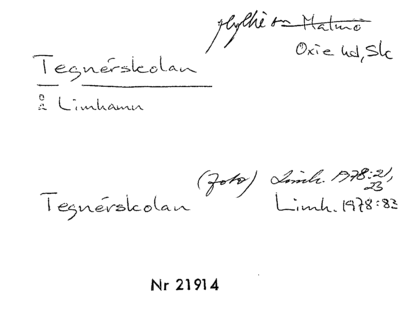 Malmö
Oxie hd, Sk
Tegnérskolan
i Limhamn
(foto) Limh. 1978:21,
23
Tegnérskolan Limh. 1978:83
Nr 21914